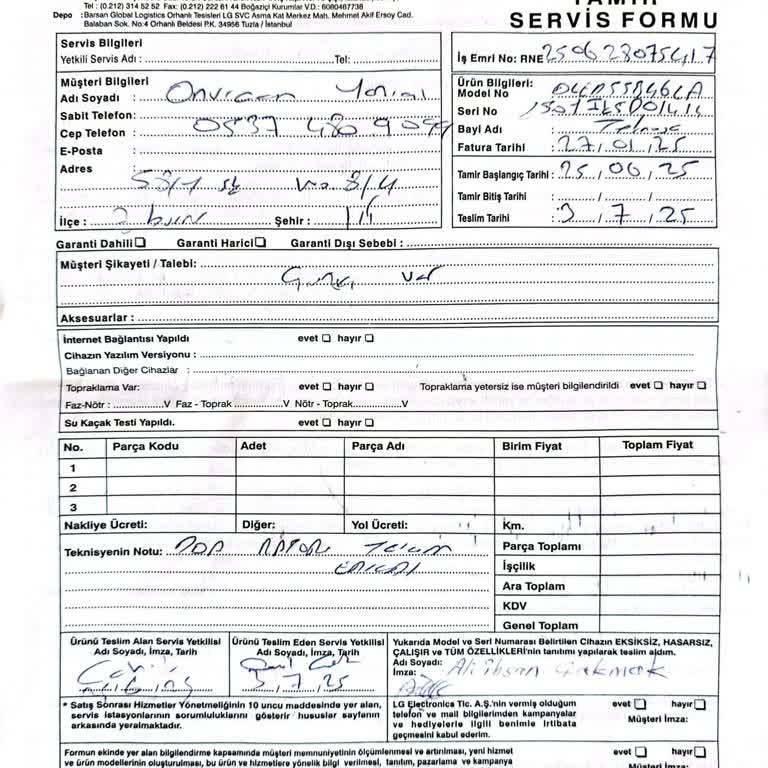 TAMİR
SERVİS FORMU
Tel : (0.212) 314 52 52 Fax: (0.212) 222 61 44 Boğaziçi Kurumlar V.D.: 6080467738
Depo : Barsan Global Logistics Orhanlı Tesisleri LG SVC Asma Kat Merkez Mah. Mehmet Akif Ersoy Cad.
Balaban Sok. No:4 Orhanlı Beldesi P.K. 34956 Tuzla / İstanbul
Servis Bilgileri
Yetkili Servis Adı : Tel:
İş Emri No: RNE 250628075417
Müşteri Bilgileri
Adı Soyadı :
Sabit Telefon:
Cep Telefon : 0537 480
E-Posta :
Adres : 53/1 sk No 3/4
İlçe : Şehir :
Ürün Bilgileri:
Model No
Seri No
Bayi Adı :
Fatura Tarihi : 27.01.25
Tamir Başlangıç Tarihi : 25.06.25
Tamir Bitiş Tarihi : / /
Teslim Tarihi : 3.7.25
Garanti Dahili Garanti Harici Garanti Dışı Sebebi :
Müşteri Şikayeti / Talebi:
var
Aksesuarlar :
İnternet Bağlantısı Yapıldı evet hayır
Cihazın Yazılım Versiyonu :
Bağlanan Diğer Cihazlar :
Topraklama Var: evet hayır Topraklama yetersiz ise müşteri bilgilendirildi evet hayır
Faz-Nötr : V Faz - Toprak V Nötr - Toprak V
Su Kaçak Testi Yapıldı. evet hayır
No. Parça Kodu Adet Parça Adı Birim Fiyat Toplam Fiyat
1
2
3
Nakliye Ücreti: Diğer: Yol Ücreti: Km.
Teknisyenin Notu:
Parça Toplamı
İşçilik
Ara Toplam
KDV
Genel Toplam
Ürünü Teslim Alan Servis Yetkilisi
Adı Soyadı, İmza, Tarih
Ürünü Teslim Eden Servis Yetkilisi
Adı Soyadı, İmza, Tarih
3.7.25
Yukarıda Model ve Seri Numarası Belirtilen Cihazın EKSİKSİZ, HASARSIZ,
ÇALIŞIR ve TÜM ÖZELLİKLERİ'nin tanıtımı yapılarak teslim aldım.
Adı Soyadı: Ali ihsan Çakmak
İmza:
* Satış Sonrası Hizmetler Yönetmeliğinin 10 uncu maddesinde yer alan,
servis istasyonlarının sorumluluklarını gösterir hususlar sayfanın
arkasında yeralmaktadır.
LG Electronics Tic. A.Ş.'nin vermiş olduğum
telefon ve mail bilgilerimden kampanyalar
ve hediyelerle ilgili benimle irtibata
geçmesini kabul ederim.
evet hayır
Müşteri İmza:
Formun ekinde yer alan bilgilendirme kapsamında müşteri memnuniyetinin ölçümlenmesi ve artırılması, yeni hizmet
ve ürün modellerinin oluşturulması, bu ürün ve hizmetlere yönelik bilgi verilmesi, tanıtım, pazarlama ve kampanya
evet hayır
Müşteri İmza: